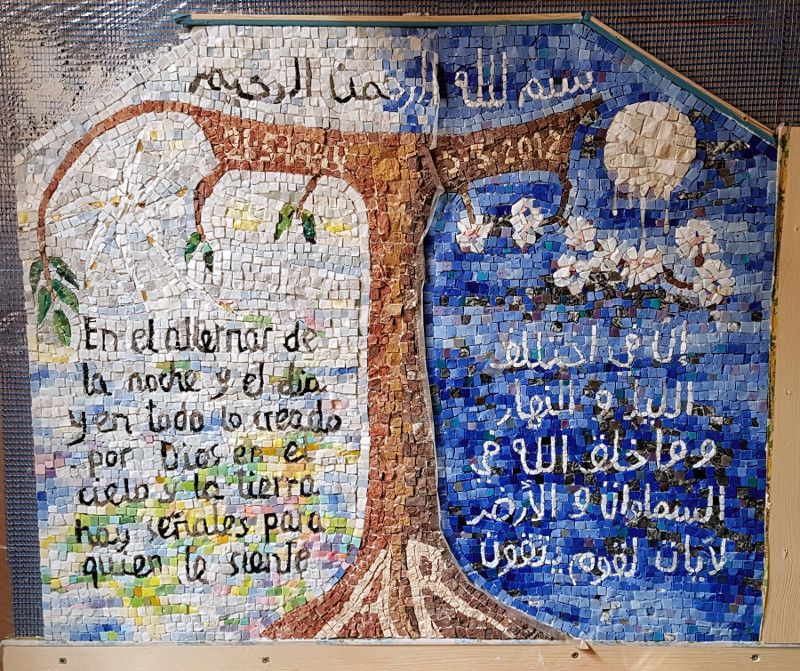 بسم الله الرحمن الرحيم
En el alternar de
la noche y el dia
y en todo lo creado
por Dios en el
cielo y la tierra
hay señales para
quien le siente
إن في اختلف
الليل و النهار
وما خلق الله في
السماوات و الأرض
لآيات لقوم يتقون